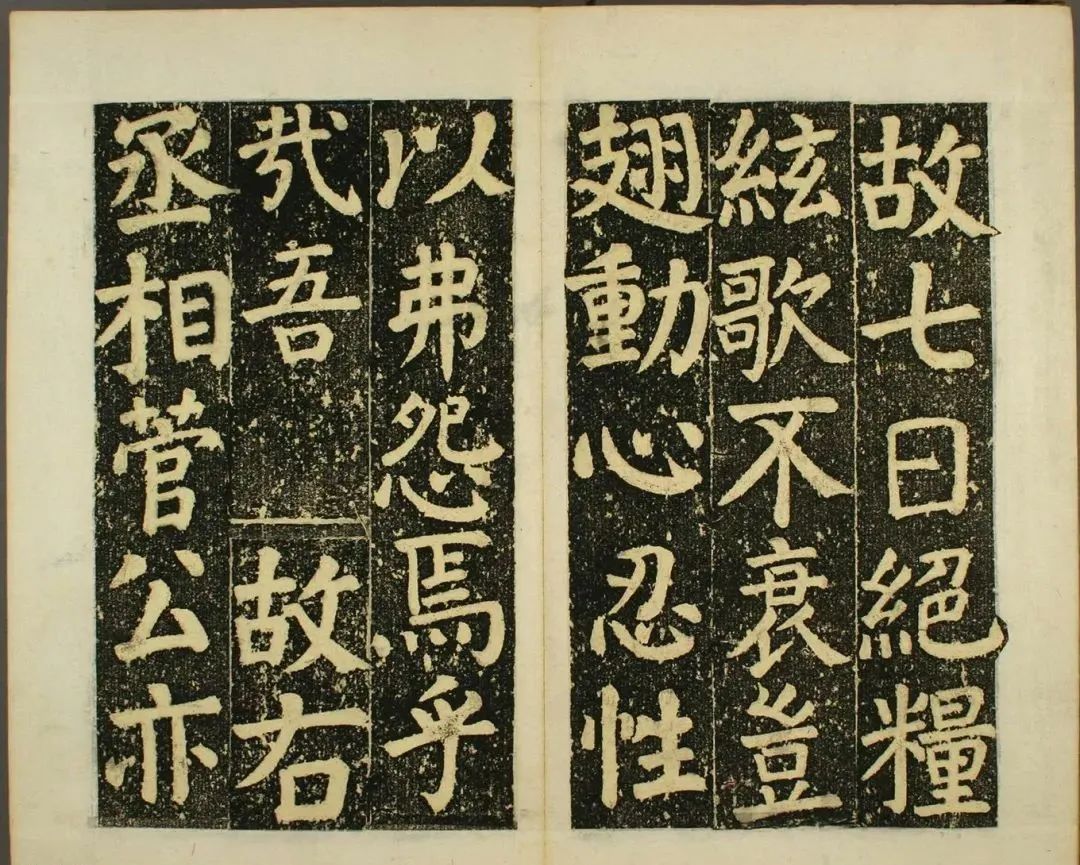 故七日絕糧
絃歌不衰豈
翅動心忍性
以弗怨焉乎
㢤吾故右
丞相菅公亦